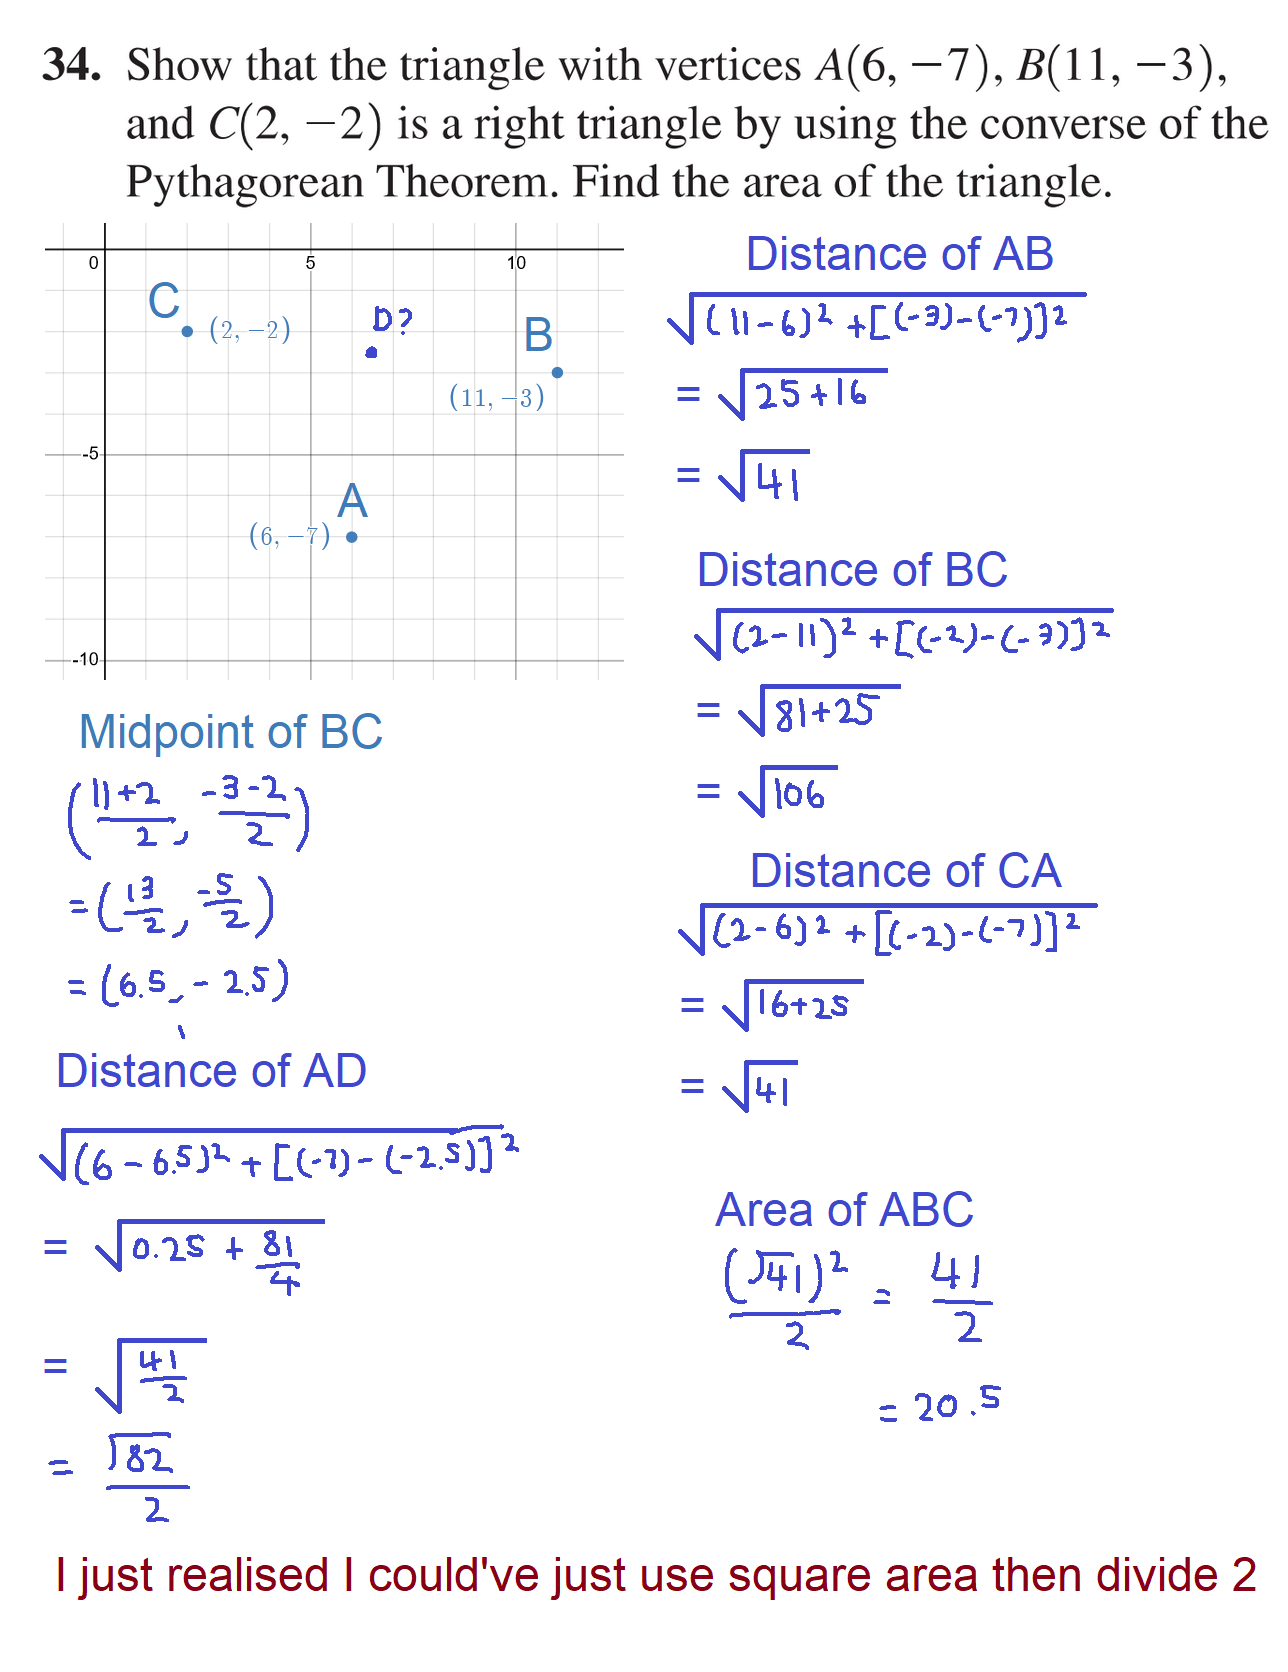 34. Show that the triangle with vertices A(6, −7), B(11, −3),
and C(2, −2) is a right triangle by using the converse of the
Pythagorean Theorem. Find the area of the triangle.
0 5 10
C
(2, −2)
D?
B
(11, −3)
-5
A
(6, −7)
-10
Midpoint of BC
((11+2)/2, (-3-2)/2)
= (13/2, -5/2)
= (6.5, -2.5)
Distance of AD
√((6-6.5)² + [(-7)-(-2.5)]²)
= √(0.25 + 81/4)
= √(41/2)
= √82/2
Distance of AB
√((11-6)² + [(-3)-(-7)]²)
= √(25+16)
= √41
Distance of BC
√((2-11)² + [(-2)-(-3)]²)
= √(81+25)
= √106
Distance of CA
√((2-6)² + [(-2)-(-7)]²)
= √(16+25)
= √41
Area of ABC
(√41)²/2 = 41/2
= 20.5
I just realised I could've just use square area then divide 2